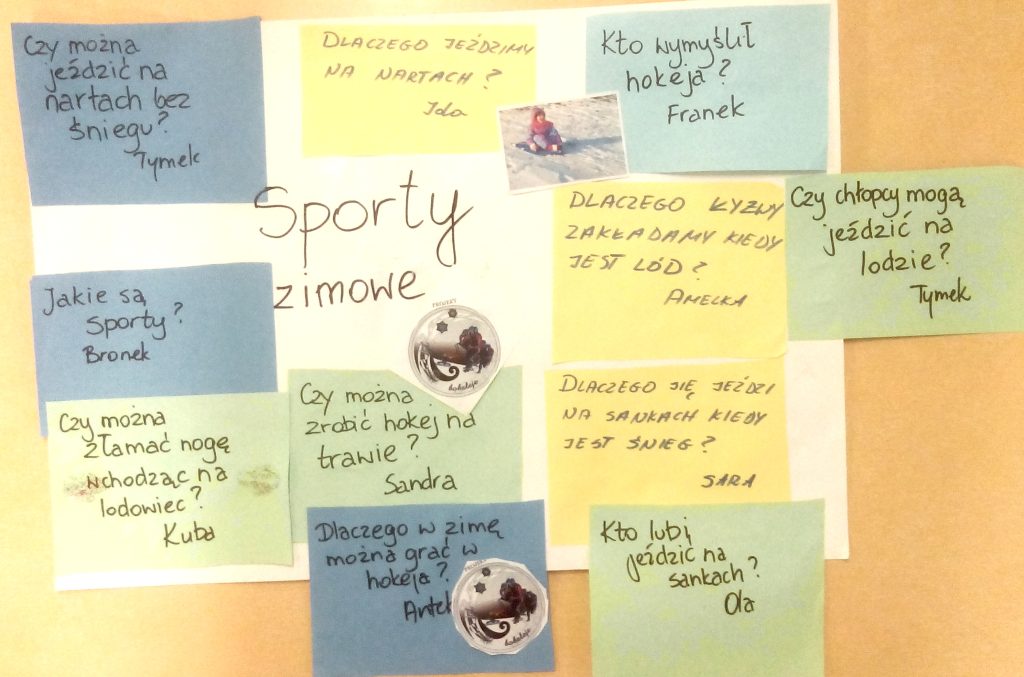 Czy można
jeździć na
nartach bez
śniegu?
Tymek
DLACZEGO JEŹDZIMY
NA NARTACH?
Ida
Kto wymyślił
hokeja?
Franek
Sporty
zimowe
DLACZEGO ŁYZWY
ZAKŁADAMY KIEDY
JEST LÓD?
AMELKA
Czy chłopcy mogą
jeździć na
lodzie?
Tymek
Jakie są
sporty?
Bronek
Czy można
złamać nogę
wchodząc na
lodowiec?
Kuba
Czy można
zrobić hokej na
trawie?
Sandra
DLACZEGO SIĘ JEŹDZI
NA SANKACH KIEDY
JEST ŚNIEG?
SARA
Dlaczego w zimę
można grać w
hokeja?
Kto lubi
jeździć na
sankach?
Ola